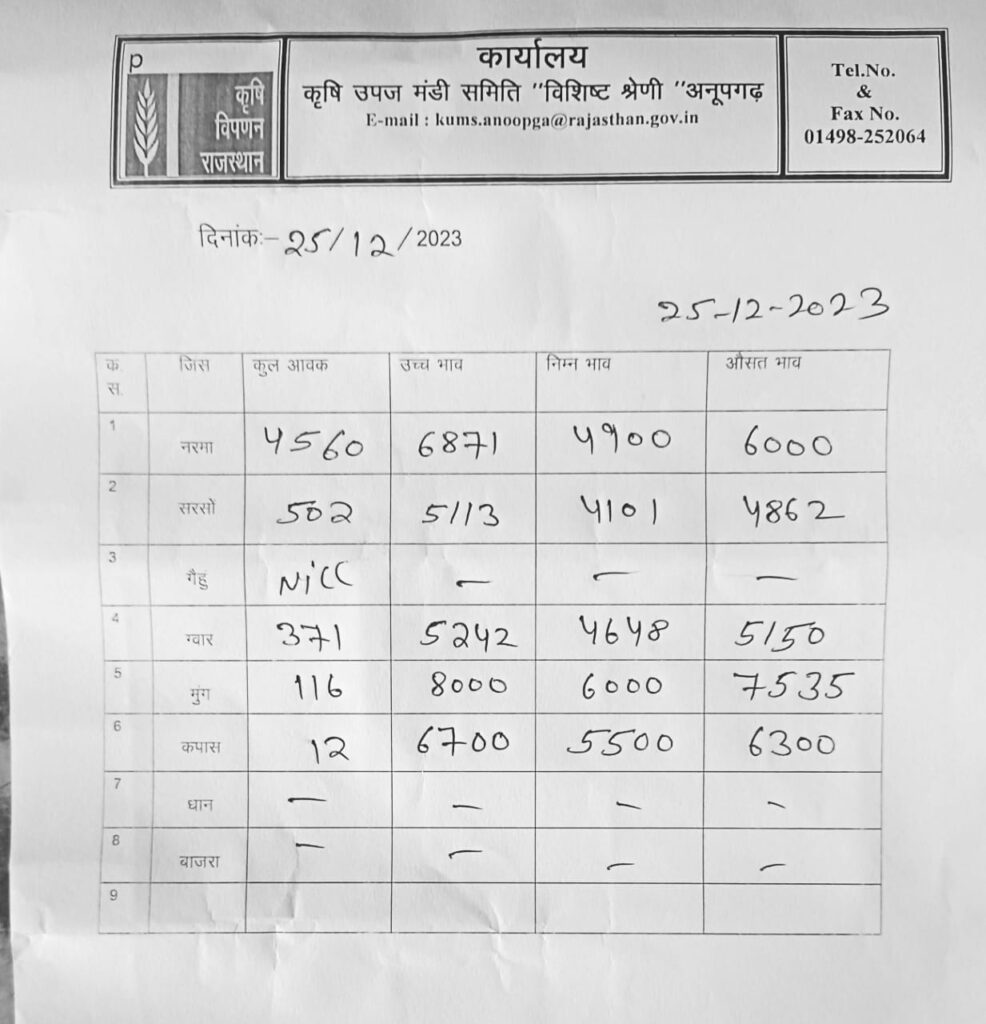 p
कृषि
विपणन
राजस्थान
कार्यालय
कृषि उपज मंडी समिति "विशिष्ट श्रेणी "अनूपगढ़
E-mail : kums.anoopga@rajasthan.gov.in
Tel.No.
&
Fax No.
01498-252064
दिनांकः– 25/12/2023
25-12-2023
क. स. जिंस कुल आवक उच्च भाव निम्न भाव औसत भाव
1 नरमा 4560 6871 4900 6000
2 सरसों 502 5113 4101 4862
3 गैहु Nill — — —
4 ग्वार 371 5242 4648 5150
5 मुंग 116 8000 6000 7535
6 कपास 12 6700 5500 6300
7 धान — — — —
8 बाजरा — — — —
9